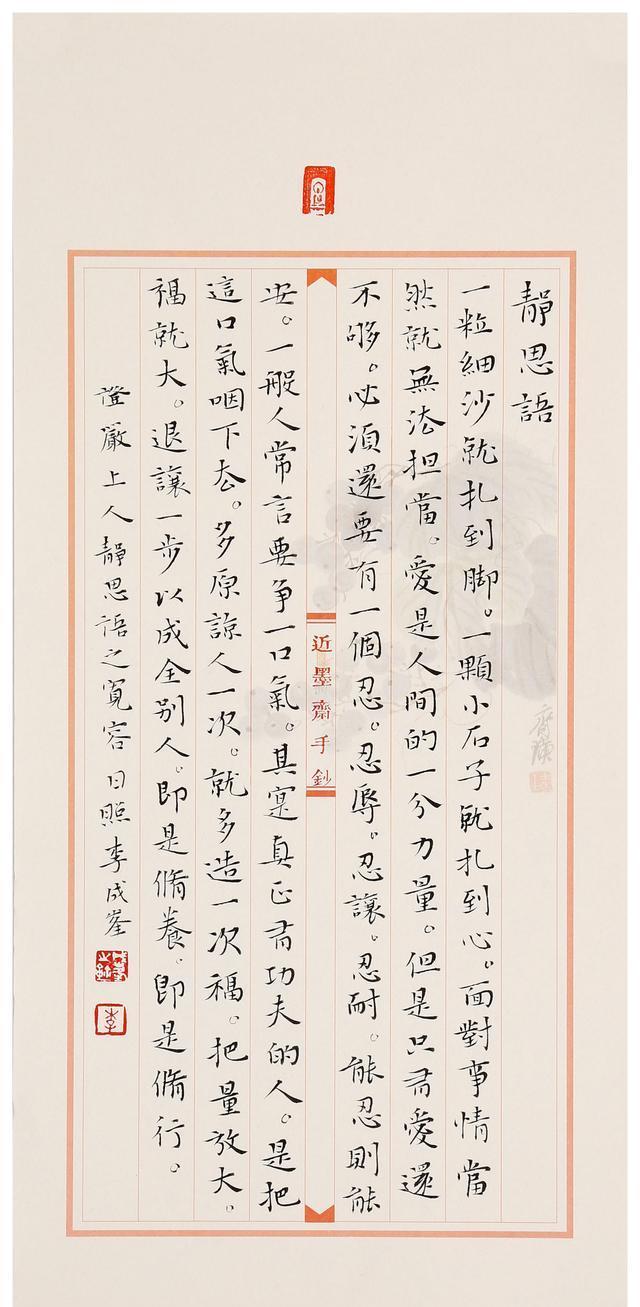 靜思語
一粒細沙就扎到脚。一顆小石子就扎到心。面對事情當
然就無法担當。愛是人間的一分力量。但是只有愛還
不够。必須還要有一個忍。忍辱。忍讓。忍耐。能忍則能
近墨齋手鈔
安。一般人常言要争一口氣。其寔真正有功夫的人。是把
這口氣咽下去。多原諒人一次。就多造一次福。把量放大。
福就大。退讓一步以成全别人。即是脩養。即是脩行。
證嚴上人靜思語之寬容日照李成峯
齊璜
李